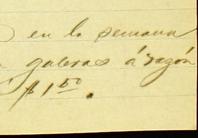 en la semana
galeras á razón
$1.50.